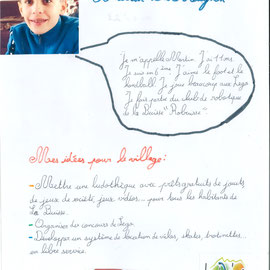 Je m'appelle Martin. J'ai 11 ans.
Je suis en 6ème. J'aime le foot et le
handball. Je joue beaucoup aux Lego.
Je fais partie du club de robotique
de La Buisse "Robuisse"
Mes idées pour le village:
- Mettre une ludothèque avec prêts gratuits de jouets,
de jeux de société, jeux vidéos... pour tous les habitants de
La Buisse.
- Organiser des concours de Lego.
- Développer un système de location de vélos, skates, trottinettes...
en libre service.